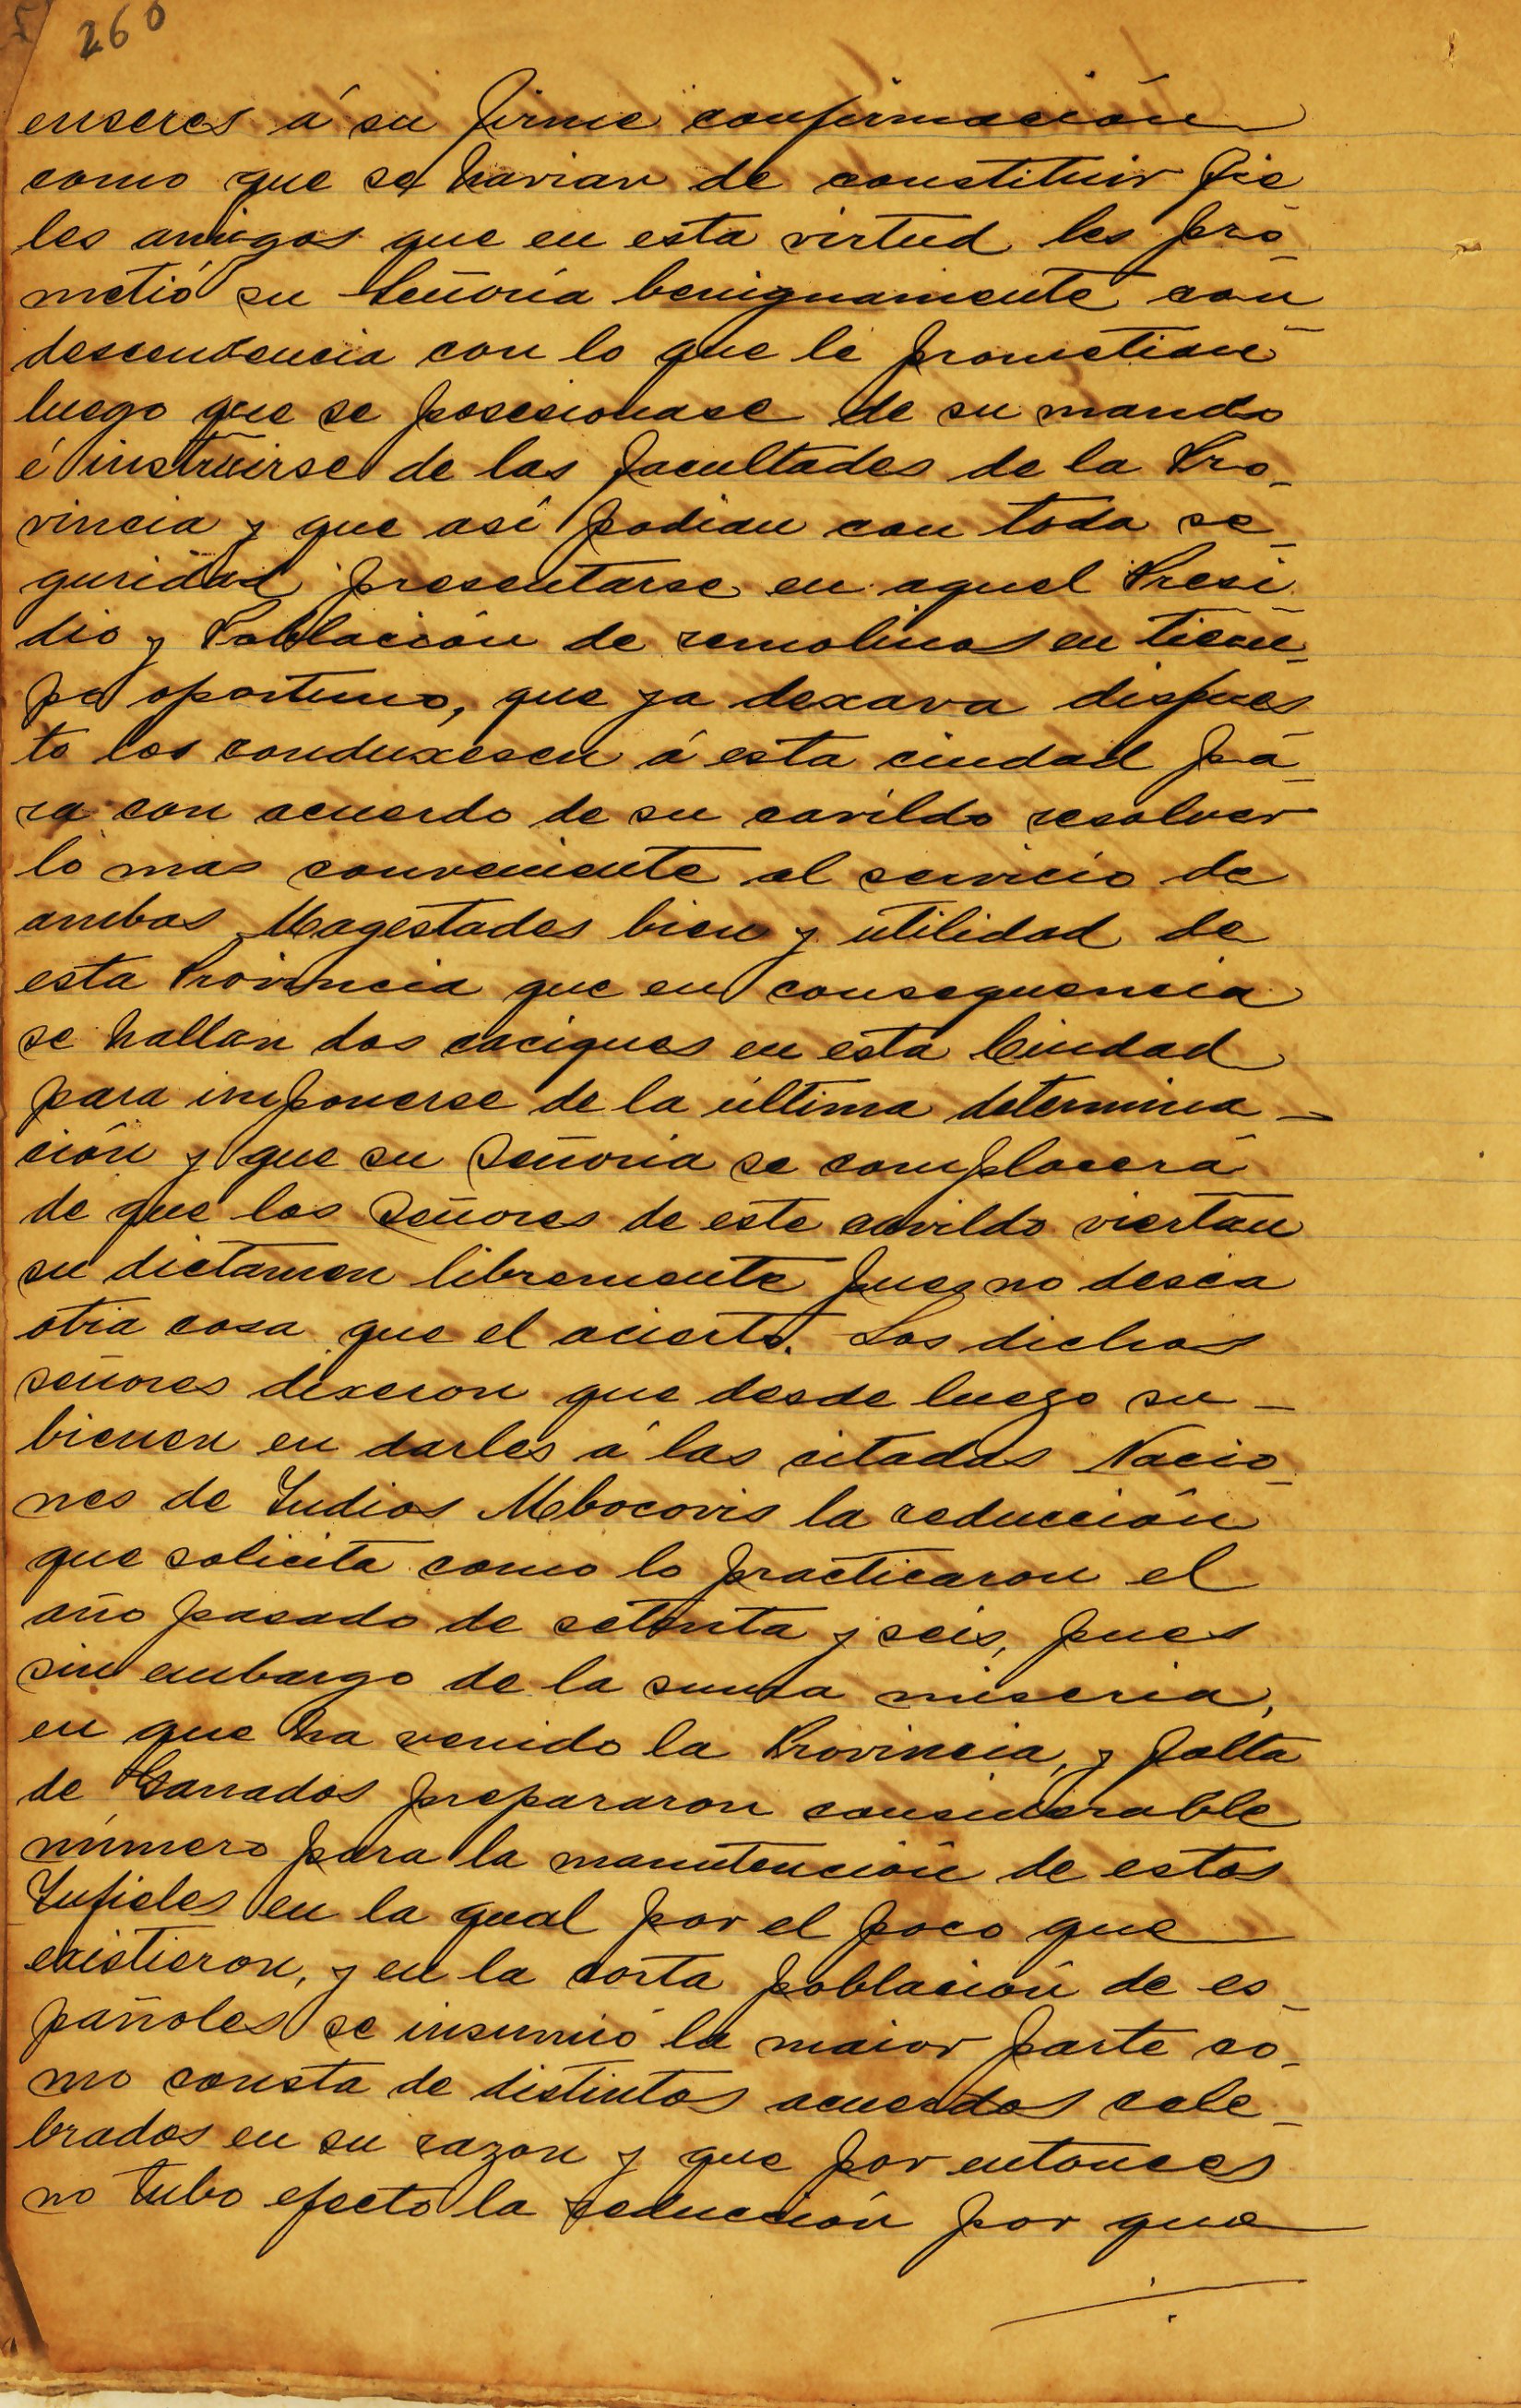 266
enseres á su firme confirmación
como que se havian de constituir fie
les amigos que en esta virtud les pro-
metió su Señoría benignamente con
descendencia con lo que le prometian
luego que se posesionase de su mando
é instruirse de las facultades de la Pro-
vincia y que así podian con toda se-
guridad presentarse en aquel Presi
dio y Poblacion de remolinos en tiem-
po oportuno, que ya dexava dispues
to los conduxesen á esta ciudad pa-
ra con acuerdo de su cavildo resolver
lo mas conveniente al servicio de
ambas Magestades bien y utilidad de
esta Provincia que en consequencia
se hallan dos caciques en esta Ciudad
para imponerse de la última determina-
ción y que su Señoria se complacerá
de que los Señores de este cavildo viertan
su dictamen libremente pues no desea
otra cosa que el acierto. Los dichos
señores dixeron que desde luego su-
bienen en darles á las citadas Nacio-
nes de Indios Mbocovis la reducción
que solicita como lo practicaron el
año pasado de setenta y seis, pues
sin embargo de la suma miseria,
en que ha venido la Provincia, y falta
de Ganados prepararon considerable
número para la manutención de estos
Infieles en la qual por el poco que
existieron, y en la corta población de es-
pañoles se insumió la maior parte co-
mo consta de distintos acuerdos cele-
brados en su razon y que por entonces
no tubo efecto la reducción por que